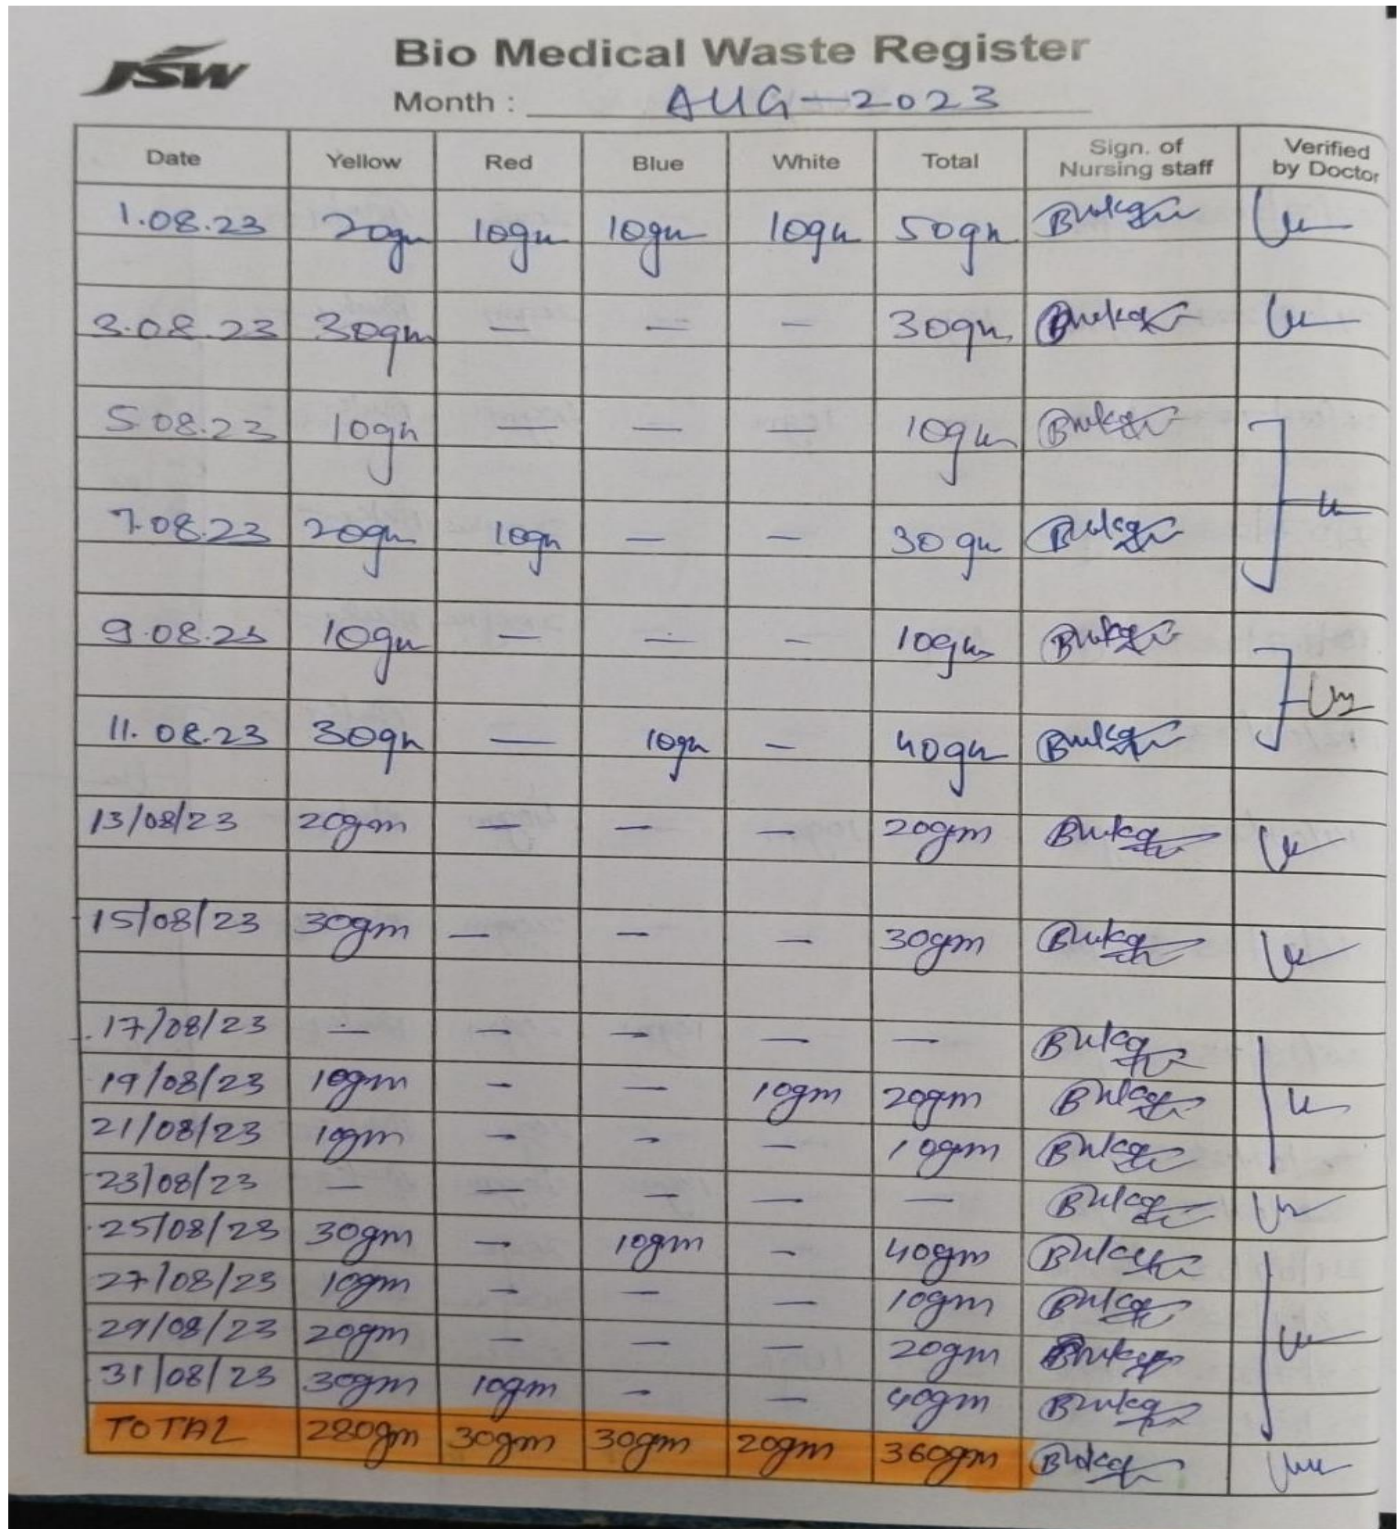 JSW
Bio Medical Waste Register
Month : AUG-2023
Date Yellow Red Blue White Total Sign. of Nursing staff Verified by Doctor
1.08.23 20gm 10gm 10gm 10gm 50gm
3.08.23 30gm — — — 30gm
5.08.23 10gm — — — 10gm
7.08.23 20gm 10gm — — 30gm
9.08.23 10gm — — — 10gm
11.08.23 30gm — 10gm — 40gm
13/08/23 20gm — — — 20gm
15/08/23 30gm — — — 30gm
17/08/23 — — — — —
19/08/23 10gm — — 10gm 20gm
21/08/23 10gm — — — 10gm
23/08/23 — — — — —
25/08/23 30gm — 10gm — 40gm
27/08/23 10gm — — — 10gm
29/08/23 20gm — — — 20gm
31/08/23 30gm 10gm — — 40gm
TOTAL 280gm 30gm 30gm 20gm 360gm